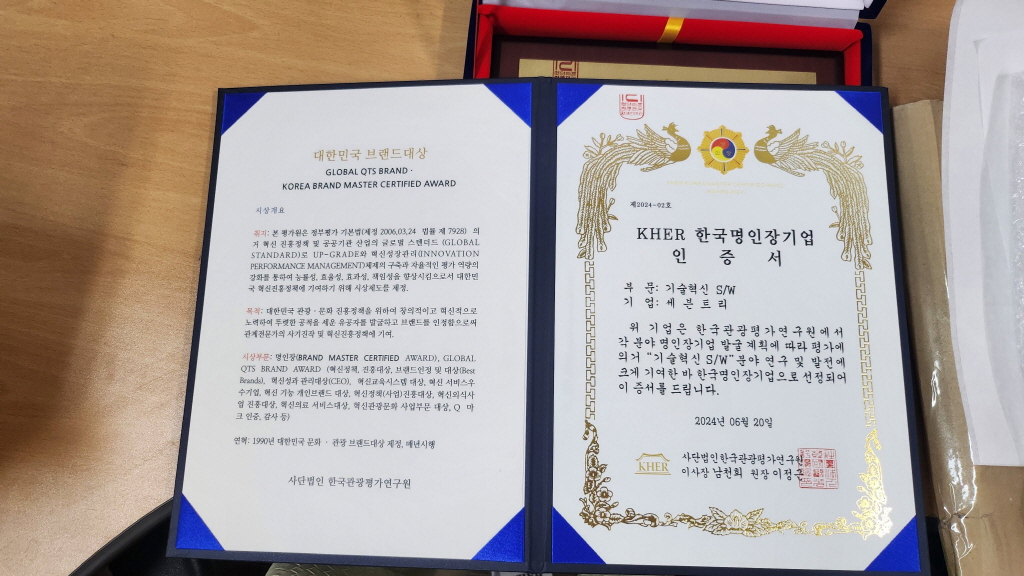 대한민국 브랜드대상
GLOBAL QTS BRAND ·
KOREA BRAND MASTER CERTIFIED AWARD
시상개요
취지: 본 평가원은 정부평가 기본법(제정 2006.03.24 법률 제 7928) 의
거 혁신 진흥정책 및 공공기관 산업의 글로벌 스텐더드 (GLOBAL
STANDARD)로 UP-GRADE와 혁신성장관리(INNOVATION
PERFORMANCE MANAGEMENT)체제의 구축과 자율적인 평가 역량의
강화를 통하여 능률성, 효율성, 효과성, 책임성을 향상시킴으로서 대한민
국 혁신진흥정책에 기여하기 위해 시상제도를 제정.
목적: 대한민국 관광 · 문화 진흥정책을 위하여 창의적이고 혁신적으로
노력하여 뚜렷한 공적을 세운 유공자를 발굴하고 브랜드를 인정함으로써
관계전문가의 사기진작 및 혁신진흥정책에 기여.
시상부문: 명인장(BRAND MASTER CERTIFIED AWARD), GLOBAL
QTS BRAND AWARD (혁신정책, 진흥대상, 브랜드인정 및 대상(Best
Brands), 혁신성과 관리대상(CEO), 혁신교육시스템 대상, 혁신 서비스우
수기업, 혁신 기능 개인브랜드 대상, 혁신정책(사업)진흥대상, 혁신외식사
업 진흥대상, 혁신의료 서비스대상, 혁신관광문화 사업부문 대상, Q 마
크 인증, 감사 등)
연혁: 1990년 대한민국 문화 · 관광 브랜드대상 제정, 매년시행
사단법인 한국관광평가연구원
제2024-02호
KHER 한국명인장기업
인 증 서
부 문: 기술혁신 S/W
기 업: 세 븐 트 리
위 기업은 한국관광평가연구원에서
각 분야 명인장기업 발굴 계획에 따라 평가에
의거 "기술혁신 S/W" 분야 연구 및 발전에
크게 기여한 바 한국명인장기업으로 선정되어
이 증서를 드립니다.
2024년 06월 20일
KHER
사단법인한국관광평가연구원
이사장 남천희 원장 이정은